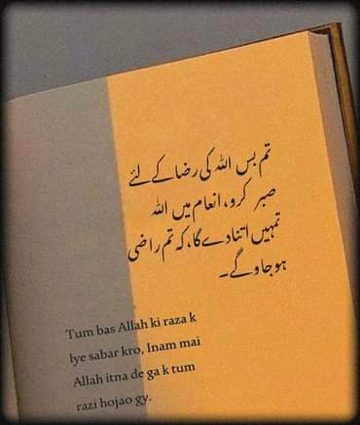 تم بس اللہ کی رضا کے لئے
صبر کرو، انعام میں اللہ
تمہیں اتنا دے گا، کہ تم راضی
ہو جاو گے۔
Tum bas Allah ki raza k
lye sabar kro, Inam mai
Allah itna de ga k tum
razi hojao gy,